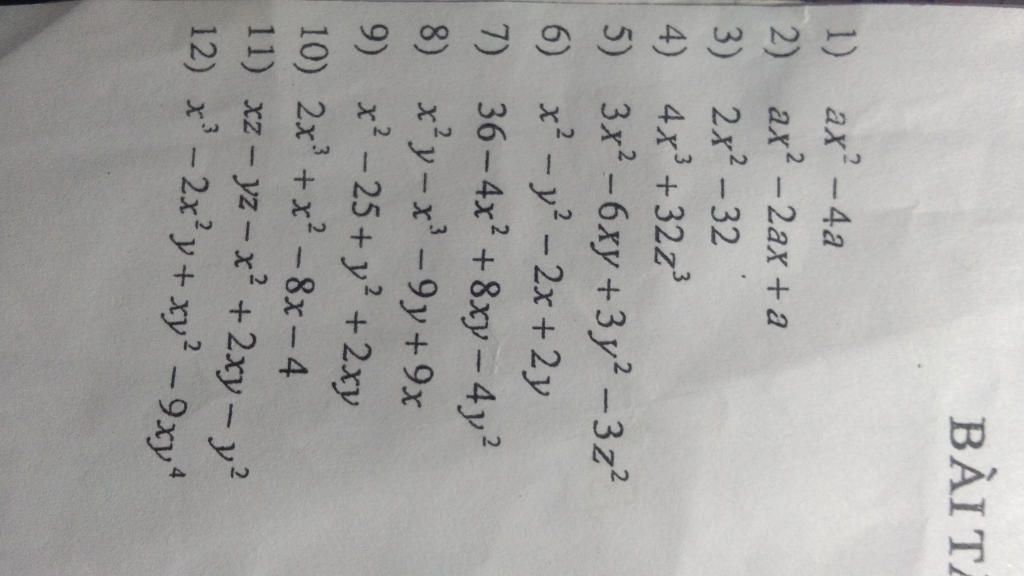 BÀI TẬ
1) ax² – 4a
2) ax² – 2ax + a
3) 2x² – 32
4) 4x³ + 32z³
5) 3x² – 6xy + 3y² – 3z²
6) x² – y² – 2x + 2y
7) 36 – 4x² + 8xy – 4y²
8) x²y – x³ – 9y + 9x
9) x² – 25 + y² + 2xy
10) 2x³ + x² – 8x – 4
11) xz – yz – x² + 2xy – y²
12) x³ – 2x²y + xy² – 9xy⁴